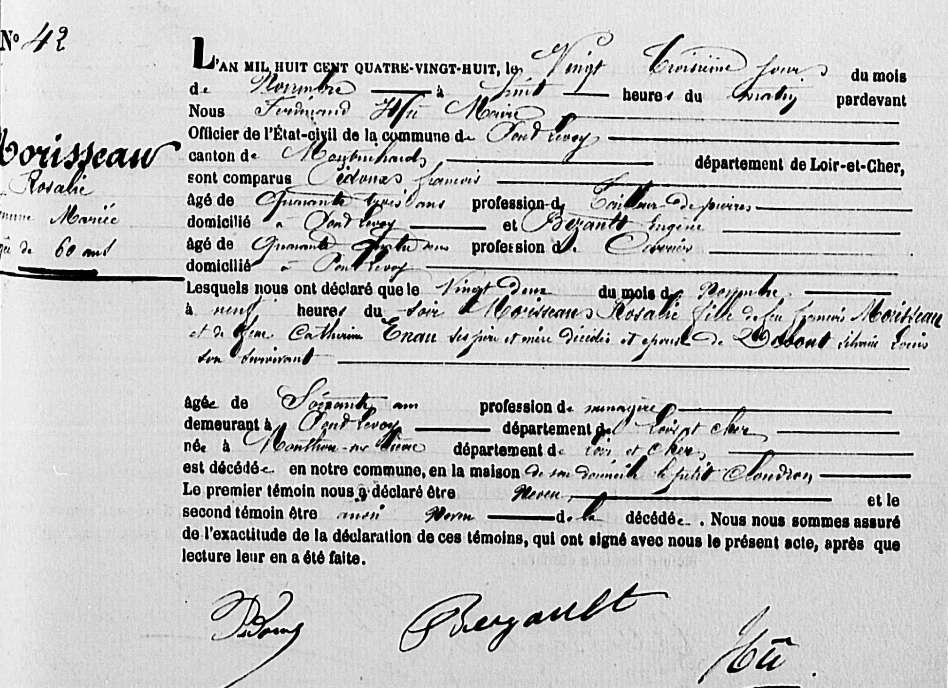 N° 42
Morisseau
Rosalie
Mariée
de 60 ans
L'AN MIL HUIT CENT QUATRE-VINGT-HUIT, le Vingt Troisième jour du mois
de Novembre à huit heures du matin pardevant
Nous Ferdinand Maire
Officier de l'État-civil de la commune de Pontlevoy
canton de Montrichard département de Loir-et-Cher,
sont comparus françois
âgé de Quarante trois ans profession de Tailleur de pierres
domicilié à Pontlevoy et Bezault Eugène
âgé de Quarante ans profession de
domicilié à Pontlevoy
Lesquels nous ont déclaré que le Vingt deux du mois de Novembre
à neuf heures du soir Morisseau Rosalie fille de feu françois Morisseau
et de feue Catherine Enau ses père et mère décédés et épouse de Louis
son survivant
âgée de Soixante ans profession de menagère
demeurant à Pontlevoy département de Loir et Cher
née à département de Loir et Cher
est décédée en notre commune, en la maison de son domicile le petit
Le premier témoin nous a déclaré être Neveu et le
second témoin être aussi Neveu de la décédée. Nous nous sommes assuré
de l'exactitude de la déclaration de ces témoins, qui ont signé avec nous le présent acte, après que
lecture leur en a été faite.
Bezault